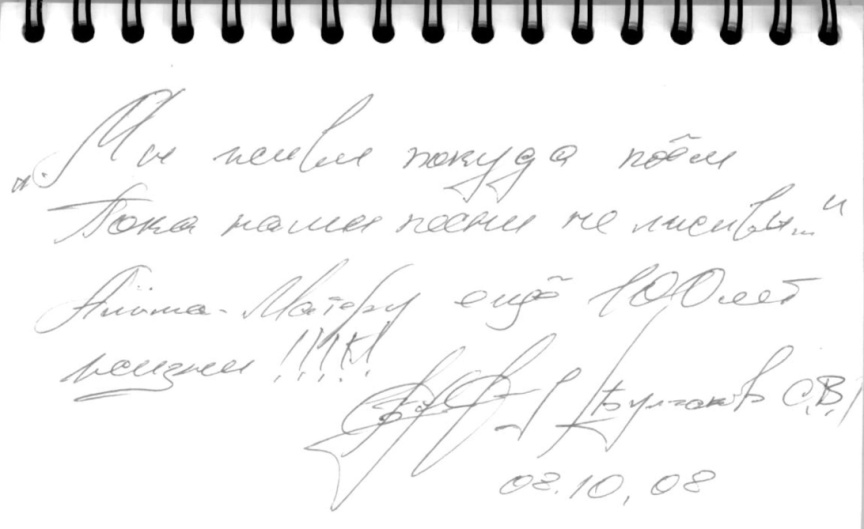 „Мы живы покуда поём
Пока наши песни не лживы..."
Альма-Матеру ещё 100 лет
жизни !!!!!
/Булгаков С.В./
08.10,08